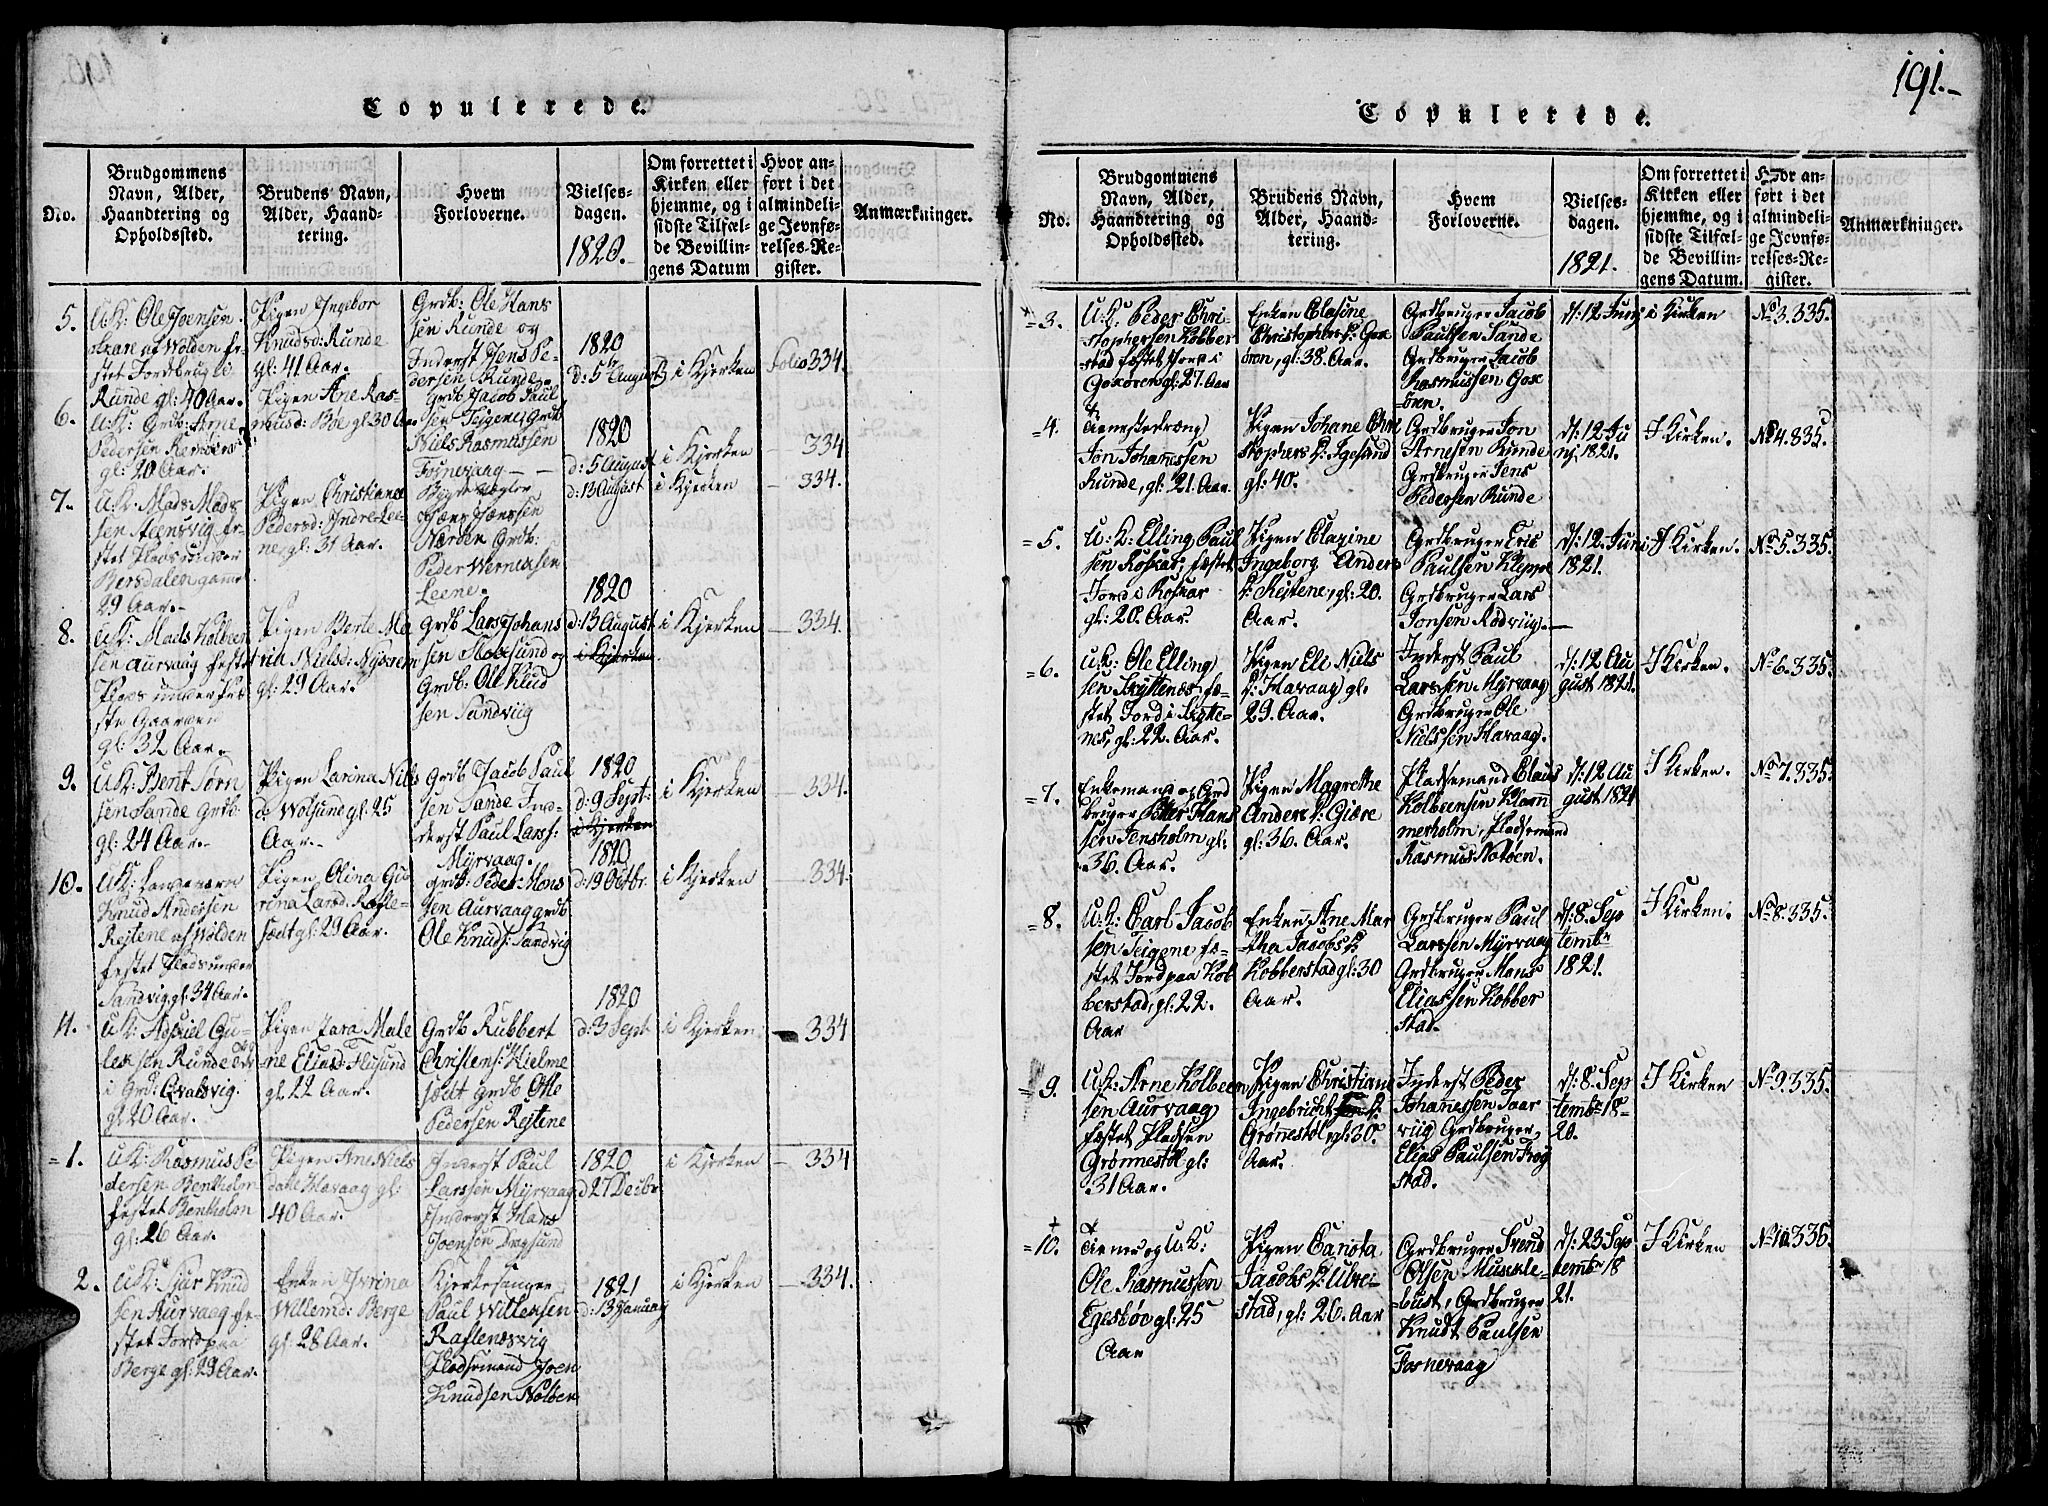 Copulerede.
No.
Brudgommens
Navn, Alder,
Haandtering og
Opholdssted.
Brudens Navn,
Alder, Haand-
tering.
Hvem
Forloverne.
Vielses-
dagen.
1820.
Om forrettet i
Kirken eller
hjemme, og i
sidste Tilfæl-
de Bevillin-
gens Datum
Hvor an-
ført i det
almindeli-
ge Jevnfø-
relses-Re-
gister.
Anmærkninger.
5.
U.K: Ole Joensen
af Wolden fe-
stet Jordbrug i
Runde gl: 40 Aar.
Pigen Ingebor
Knudsd: Runde
gl: 41 Aar.
Grdb: Ole Hans
sen Runde og
Inderst Jens Pe-
dersen Runde
1820
D: 5te August
i Kjerken
Folio 334.
6.
U.K: Grdb: Arne
Pedersen
gl: 20 Aar.
Pigen Ane Ras-
musd: Bøe gl 30 Aar
Grdb Jacob Paul
sen Teigene, Grdb
Niels Rasmussen
Fosnevaag
1820
d: 5 August
i Kjerken
334
7.
U.K: Mads Mads
sen Steensvig fe-
stet Plads under
Bersdalen gaml
29 Aar.
Pigen Christiane
Pedersd: Indre Lee-
ne, gl: 31 Aar.
Jens Jenssen
Nærøen Grdb:
Peder Wernessen
Leene.
d: 13 August
i Kjerken
334.
8.
U.K: Mads Kolbeen
sen Aurvaag festet
Plads under
gl: 32 Aar.
Pigen Berte Ma
ria Nielsd: Myrvren
gl: 29 Aar.
Grdb Lars Johans
sen og
Grdb: Ole Knud
sen Sandviig
1820
d: 13 August
i Kjerken
i Kjerken
334.
9.
U.K: Bent Sørn
sen Sande Grdb:
gl: 24 Aar.
Pigen Larina Niels
d: Wolsund gl: 25
Aar.
Grdb Jacob Paul
sen Sande Ind-
derst Paul Larss:
Myrvaag.
1820
d: 9 Sept:
i Kjerken
i Kjerken
334.
10.
U.K: Landeværn
Knud Andersen
Rejtene af Wolden
festet Plads under
Sandvig, gl: 34 Aar.
Pigen Olina Gu
rina Larsd.
gl: 29 Aar.
Grdb: Peder Mons
sen Aurvaag Grdb
Ole Knuds: Sandvig
1820
d: 19 Octbr.
i Kjerken
334.
11.
U.K: Adsiel Gu-
leksen Runde
i Grd: Qvalsvig.
gl 20 Aar.
Pigen Zara Male
ne Eliasd: Husund
gl: 22 Aar.
Grdb Rubbert
Christens: Hielme
sætt Grdb Otte
Pedersen Rejtene
1820
d: 3 Sept
i Kjerken
334
=1.
U.K: Rasmus Pe-
dersen Bentholm
festet Bentholm
gl: 26 Aar.
Pigen Ane Niels
datt Havaag gl:
40 Aar.
Inderst Paul
Larssen Myrvaag
Inderst Hans
Joensen Dragsund
1820
d 27 Decbr
i Kjerken
334
2.
U.K: Ivar Knud
sen Aurvaag fe-
stet Jord paa
Berge gl: 29 Aar.
Enken Ivrina
Willemd: Berge
gl: 28 Aar.
Kjerkesanger
Paul Willemsen
Raftenesvig
Pladsemand Joen
Knudsen Notøen
1821
d: 13 Januar
i Kjerken
334.
191.
Copulerede.
No.
Brudgommens
Navn, Alder,
Haandtering og
Opholdssted.
Brudens Navn,
Alder, Haand-
tering.
Hvem
Forloverne.
Vielses-
dagen.
1821.
Om forrettet i
Kirken eller
hjemme, og i
sidste Tilfæl-
de Bevillin-
gens Datum.
Hvor an-
ført i det
almindeli-
ge Jevnfø-
relses-Re-
gister.
Anmærkninger.
=3.
U.K. Peder Chri-
stophersen Kobber
stad fæstet Jord i
Goxøren gl: 27. Aar
Enken Elasine
Christophers D: Gox
øren, gl: 38. Aar
Grdbruger Jacob
Paulsen Sande
Grdbruger Jacob
Rasmussen Gox
=øren.
d/: 12 Juny
i Kirken
No 3. 335.
=4.
Jon Johannesen
Runde, gl: 21. Aar.
Pigen Johane Chri
stophers D: Igesund
gl: 40.
Grdbruger Jon
Arnesen Runde
Grdbruger Jens
Pedersen Runde
d/: 12 Ju
nj. 1821.
I Kirken.
No 4. 335.
=5.
U.K: Elling Paul
sen Koskar, fæstet
Jord i Koskar
gl: 20. Aar.
Pigen Elasine
Ingeborg Anders
D: Rejtene, gl: 20.
Aar.
Grdbruger Eric
Paulsen Kleppe
Grdbruger Lars
Jonsen Rødvug.
d/: 12. Juni
1821.
I Kirken.
No 5. 335.
=6.
U.K: Ole Elling
sen Skyttenes, fæ-
stet Jord i Skytte-
nes, gl: 22. Aar.
Pigen Eli Niels
D: Havaag gl:
29. Aar.
Inderst Paul
Larssen Myrvaag
Grdbruger Ole
Nielssen Havaag.
d/: 12 Au
gust 1821.
I Kirken.
No 6. 335.
=7.
Enkemand og Grd
bruger Petter Hans
sen Jensholm gl:
36. Aar.
Pigen Magrethe
Anders D: Giære
gl: 36. Aar.
Pladsemand Claus
Kolbeensen Klom
merholm, Pladsemand
Rasmus Notøen.
d/: 12 Au
gust 1821
I Kirken.
No 7. 335.
=8.
U.K. Carl Jacob
sen Teigene fæ-
stet Jord paa Kob
berstad, gl: 22.
Aar
Enken Ane Mar
tha Jacobs D
Kobberstad gl: 30
Aar.
Grdbruger Paul
Larssen Myrvaag
Grdbruger Mons
Eliassen Kobber
stad.
d/: 8. Sep
tembr
1821.
I Kirken.
No 8. 335.
=9.
U.K: Arne Kolbeen
sen Aurvaag
fæstet Pladsen
Grønnestøl gl:
31 Aar.
Pigen Christiane
Ingebricht D:
Grønestøl, gl: 30.
Aar.
Inderst Peder
Johannessen Saar
viig Grdbruger,
Elias Paulsen Rog
stad.
d/: 8. Sep
tembr 18-
20.
I Kirken
No 9. 335.
=10.
og U.K:
Ole Rasmussen
Egesbøe gl: 25
Aar
Pigen Carista
Jacobs D: Ulvei-
stad, gl: 26. Aar
Grdbruger Svend
Olsen Muskle-
bust, Grdbruger
Knudt Paulsen
Fosnevaag
d/: 23 Sep
tembr 18
21.
I Kirken
No 10. 336.